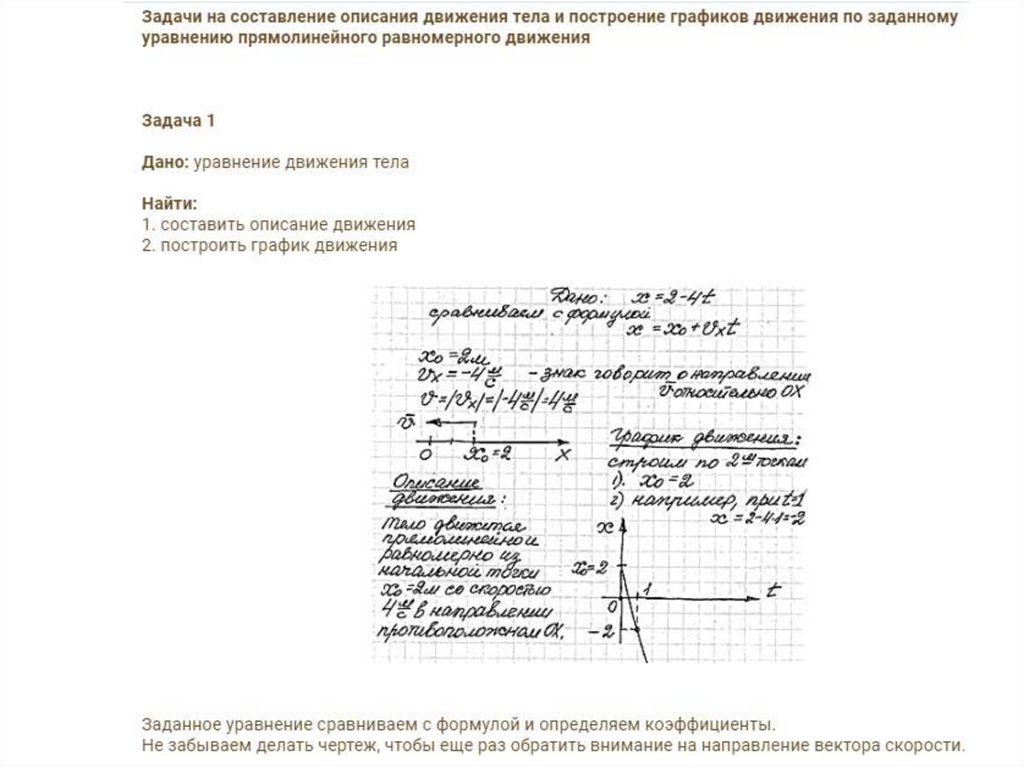 Задачи на составление описания движения тела и построение графиков движения по заданному
уравнению прямолинейного равномерного движения
Задача 1
Дано: уравнение движения тела
Найти:
1. составить описание движения
2. построить график движения
Дано: x = 2-4t
сравниваем с формулой
x = x₀ + υₓt
x₀ = 2м
υₓ = -4 м/с - знак говорит о направлении
υ̅ относительно OX
υ = |υₓ| = |-4 м/с| = 4 м/с
υ̅
0 x₀ = 2 X
Описание
движения:
Тело движется
прямолинейно и
равномерно из
начальной точки
x₀ = 2м со скоростью
4 м/с в направлении
противоположном OX.
График движения:
строим по 2ᵘᵐ точкам
1). x₀ = 2
2) например, при t=1
x = 2-4·1=-2
x
x₀ = 2
0
1
t
-2
Заданное уравнение сравниваем с формулой и определяем коэффициенты.
Не забываем делать чертеж, чтобы еще раз обратить внимание на направление вектора скорости.